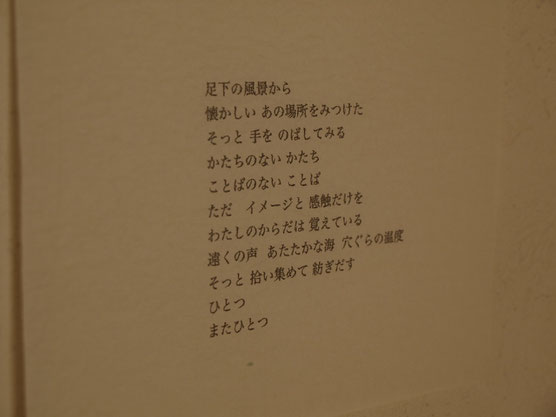 足下の風景から
懐かしい あの場所をみつけた
そっと 手を のばしてみる
かたちのない かたち
ことばのない ことば
ただ　イメージと 感触だけを
わたしのからだは 覚えている
遠くの声　あたたかな海　穴ぐらの温度
そっと 拾い集めて 紡ぎだす
ひとつ
またひとつ